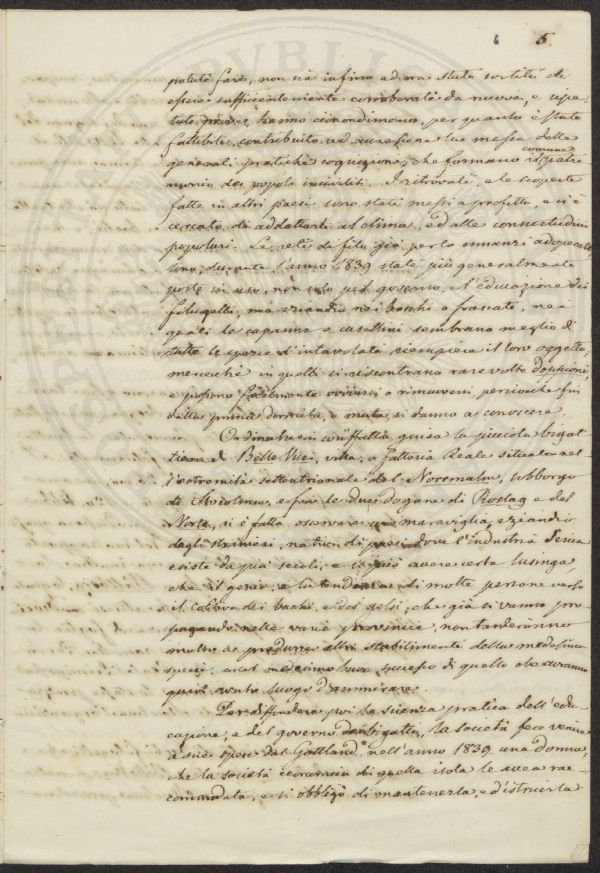 5.
potuto fare, non sia infino ad ora stato sortito di
essere sufficientemente corroborate da nuove, e ripe-
tute prove, hanno cionondimeno, per quanto è stato
fattibile, contribuito ad accrescere la messa delle
generali pratiche cognizioni, che formano il comune patri-
monio dei popoli inciviliti. I ritrovati, e le scoperte
fatte in altri paesi sono stati messi a profitto, e si è
cercato di addattarli al clima, ed alle consuetudini
popolari. Le reti di filo già per lo innanzi adoperate
sono, durante l'anno 1839 state più generalmente
poste in uso, non solo nel governo, e l'educazione dei
filugelli, ma eziandio nei boschi o frascati, ne'
quali le capanne o casellini sembrano meglio di
tutte le specie d'intavolati riempiere il loro oggetto,
mercecchè in quelli si riscontrano rare volte doppioni,
e possono facilmente ovviarsi o rimuoversi, perciocchè fin
dalla prima dormita, o muta, si danno a conoscere.
Ordinata in siffatta guisa la piccola bigat-
tiera di Belle Vue, villa, o fattoria Reale situata nel-
l'estremità settentrionale del Norrmalm, subborgo
di Stocolma, e fra le due dogane di Roslag e del
Norte, si è fatta osservare con maraviglia eziandio
degli stranieri, nativi di paesi dove l'industria serica
esiste da più secoli, e si può avere certa lusinga,
che il genio, e la tendenza di molte persone verso
il coltivo dei bachi, e dei gelsi, che già si vanno pro-
pagando nelle varie provincie, non tarderanno
molto a produrre altri stabilimenti della medesima
specie, e col medesimo buon successo di quello che avranno
quivi avuto luogo d'ammirare.
Per diffondere poi la scienza pratica dell'edu-
cazione, e del governo de' bigatti, la società fece venire
a sue spese dal Gottland nell'anno 1839 una donna,
che la società economica di quella isola le avea rac-
commodata, e si obbligò di mantenerla, e d'istruirla